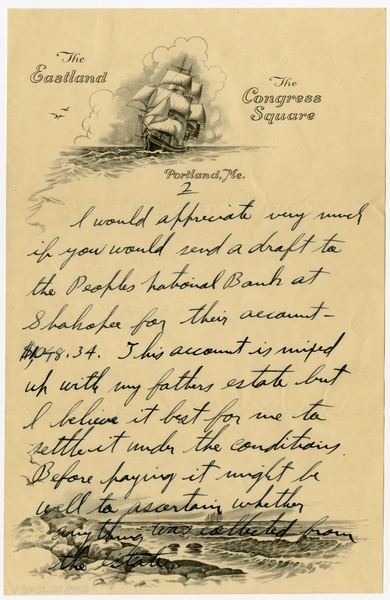 The
Eastland
The
Congress
Square
Portland, Me.
2
I would appreciate very much
if you would send a draft to
the Peoples National Bank at
Shakopee for their account—
48.34. This account is mixed
up with my fathers estate but
I believe it best for me to
settle it under the conditions.
Before paying it might be
well to ascertain whether
anything was collected from
the estate.